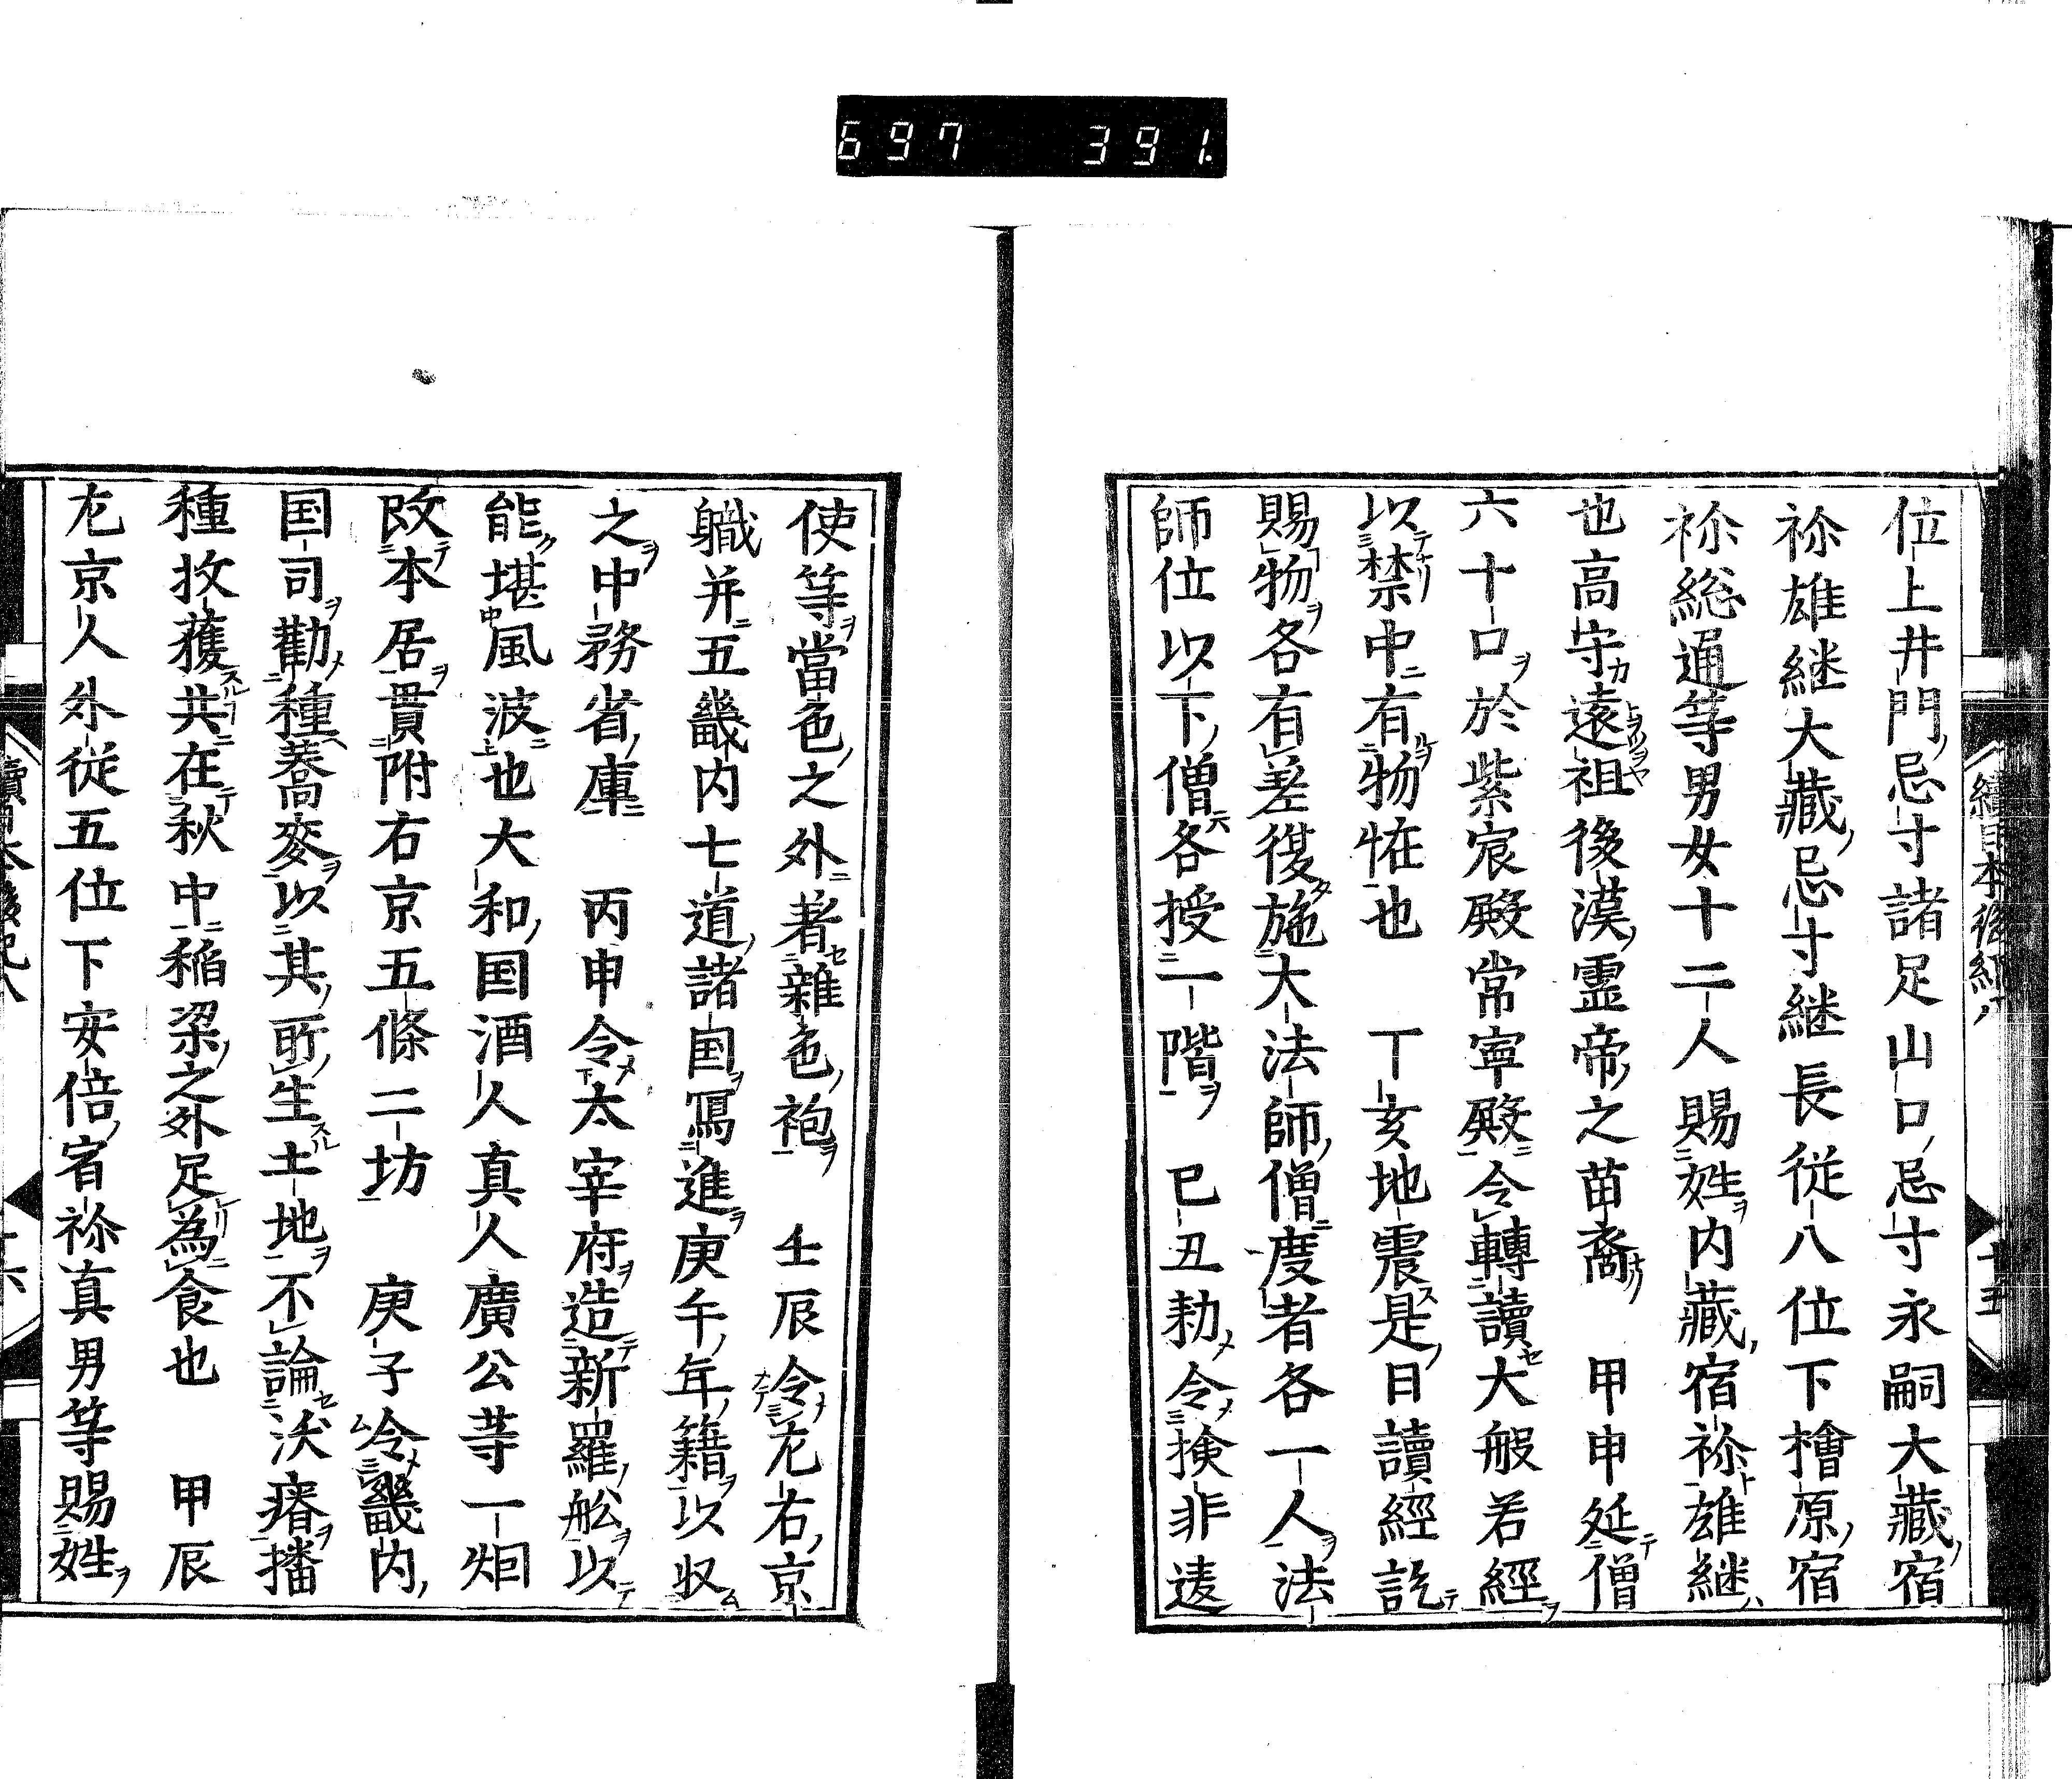 697 391.
位上井門忌寸諸足山口忌寸永嗣大藏宿
祢雄継大藏忌寸継長従八位下檜原宿
祢総通等男女十二人賜姓内藏宿祢雄継
也高守遠祖後漢霊帝之苗裔 甲申延僧
六十口於紫宸殿常寧殿令轉讀大般若經
以禁中有物恠也 丁亥地震是日讀經訖
賜物各有差復施大法師僧度者各一人法
師位以下僧各授一階 已丑勅令撿非違
使等當色之外著雜色袍 壬辰令左右京
職并五畿内七道諸国寫進庚午年籍以収
之中務省庫 丙申令太宰府造新羅舩以
能堪風波也大和国酒人真人廣公等一烟
改本居貫附右京五條二坊 庚子令畿内
国司勸種蕎麥以其所生土地不論沃瘠播
種收穫共在秋中稲梁之外足為食也 甲辰
左京人外従五位下安倍宿祢真男等賜姓